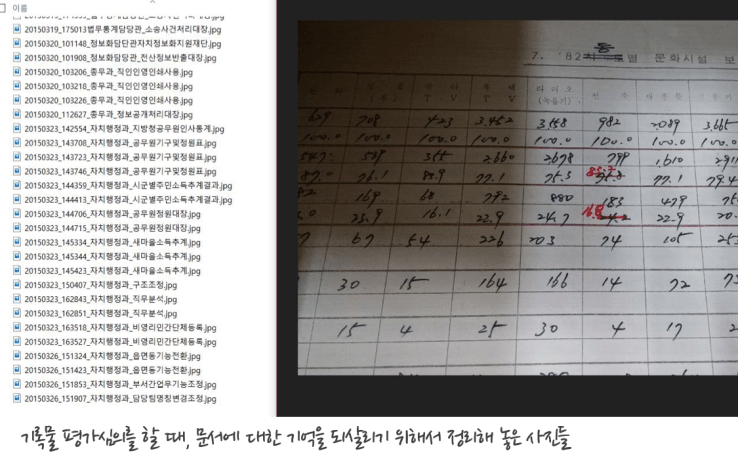 이름
20150319_175013법무통계담당관_소송사건처리대장.jpg
20150320_101148_정보화담단관자치정보화지원재단.jpg
20150320_101908_정보화담당관_전산정보반출대장.jpg
20150320_103206_총무과_직인인영인쇄사용.jpg
20150320_103218_총무과_직인인영인쇄사용.jpg
20150320_103226_총무과_직인인영인쇄사용.jpg
20150320_112627_총무과_정보공개처리대장.jpg
20150323_142554_자치행정과_지방정공무원인사통계.jpg
20150323_143708_자치행정과_공무원기구및정원표.jpg
20150323_143723_자치행정과_공무원기구및정원표.jpg
20150323_143746_자치행정과_공무원기구및정원표.jpg
20150323_144359_자치행정과_시군별주민소득추계결과.jpg
20150323_144413_자치행정과_시군별주민소득추계결과.jpg
20150323_144706_자치행정과_공무원정원대장.jpg
20150323_144715_자치행정과_공무원정원대장.jpg
20150323_145334_자치행정과_새마을소득추계.jpg
20150323_145344_자치행정과_새마을소득추계.jpg
20150323_145423_자치행정과_새마을소득추계.jpg
20150323_150407_자치행정과_구조조정.jpg
20150323_162843_자치행정과_직무분석.jpg
20150323_162851_자치행정과_직무분석.jpg
20150323_163518_자치행정과_비영리민간단체등록.jpg
20150323_163527_자치행정과_비영리민간단체등록.jpg
20150326_151324_자치행정과_읍면동기능전환.jpg
20150326_151423_자치행정과_읍면동기능전환.jpg
20150326_151853_자치행정과_부서간업무기능조정.jpg
20150326_151907_자치행정과_담당팀명칭변경조정.jpg
동
7. '82 별 문화시설 보
라디오
(녹음기)
T V T V
629 708 423 3.452 3.558 982 2.089 3.665
100.0 100.0 100.0 100.0 100.0 100.0 100.0 100.0
547 539 355 2.660 2.678 799 1.610
87.0 76.1 83.9 77.1 75.3 77.1 79.4
169 68 792 880 183 479
23.9 16.1 22.9 24.7 22.9
67 54 226 203 74 105
30 15 164 166 14 72
15 4 25 30 4 17
기록물 평가심의를 할 때, 문서에 대한 기억을 되살리기 위해서 정리해 놓은 사진들